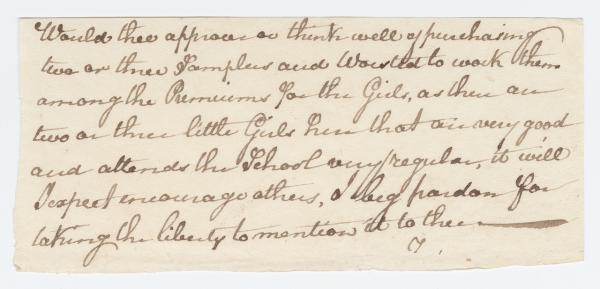 Would thee approve or think well of purchasing
two or three Samplers and Worsted to work them
among the Premiums for the Girls, as there are
two or three little Girls here that are very good
and attends the School very regular, it will
I expect encourage others, I beg pardon for
taking the liberty to mention it to thee
7.